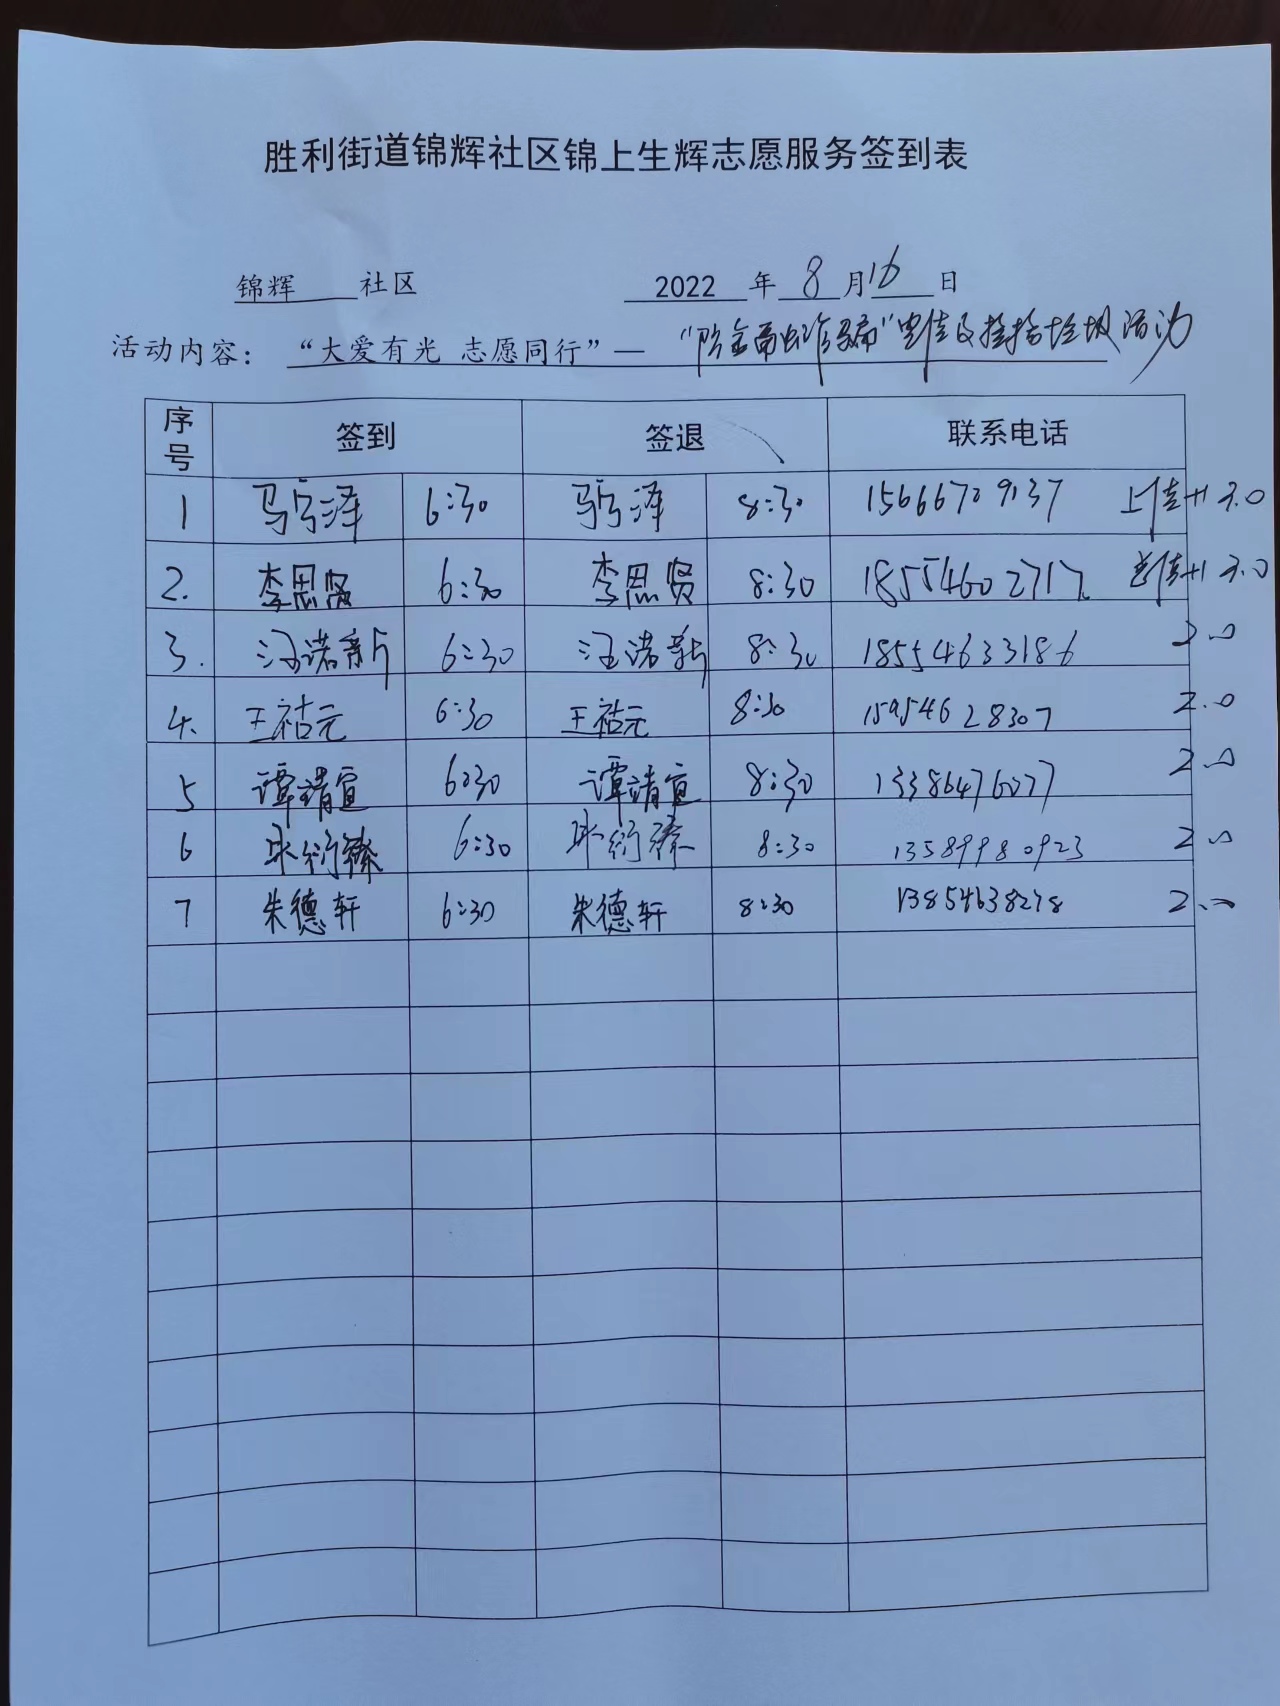 胜利街道锦辉社区锦上生辉志愿服务签到表
锦辉 社区 2022 年 8 月 16 日
活动内容： “大爱有光 志愿同行”— “防金融诈骗”宣传及捡拾垃圾活动
序号 签到 签退 联系电话
1 马宁泽 6:30 马宁泽 8:30 15666709137 +1 3.0
2. 李思贤 6:30 李思贤 8:30 18554602717 +1 3.0
3. 汪诺新 6:30 汪诺新 8:30 18554633186 2.0
4. 王祜元 6:30 王祜元 8:30 15954628307 2.0
5 谭靖宜 6:30 谭靖宜 8:30 13386476077 2.0
6 衍臻 6:30 衍臻 8:30 13589980923 2.0
7 朱德轩 6:30 朱德轩 8:30 13854638278 2.0